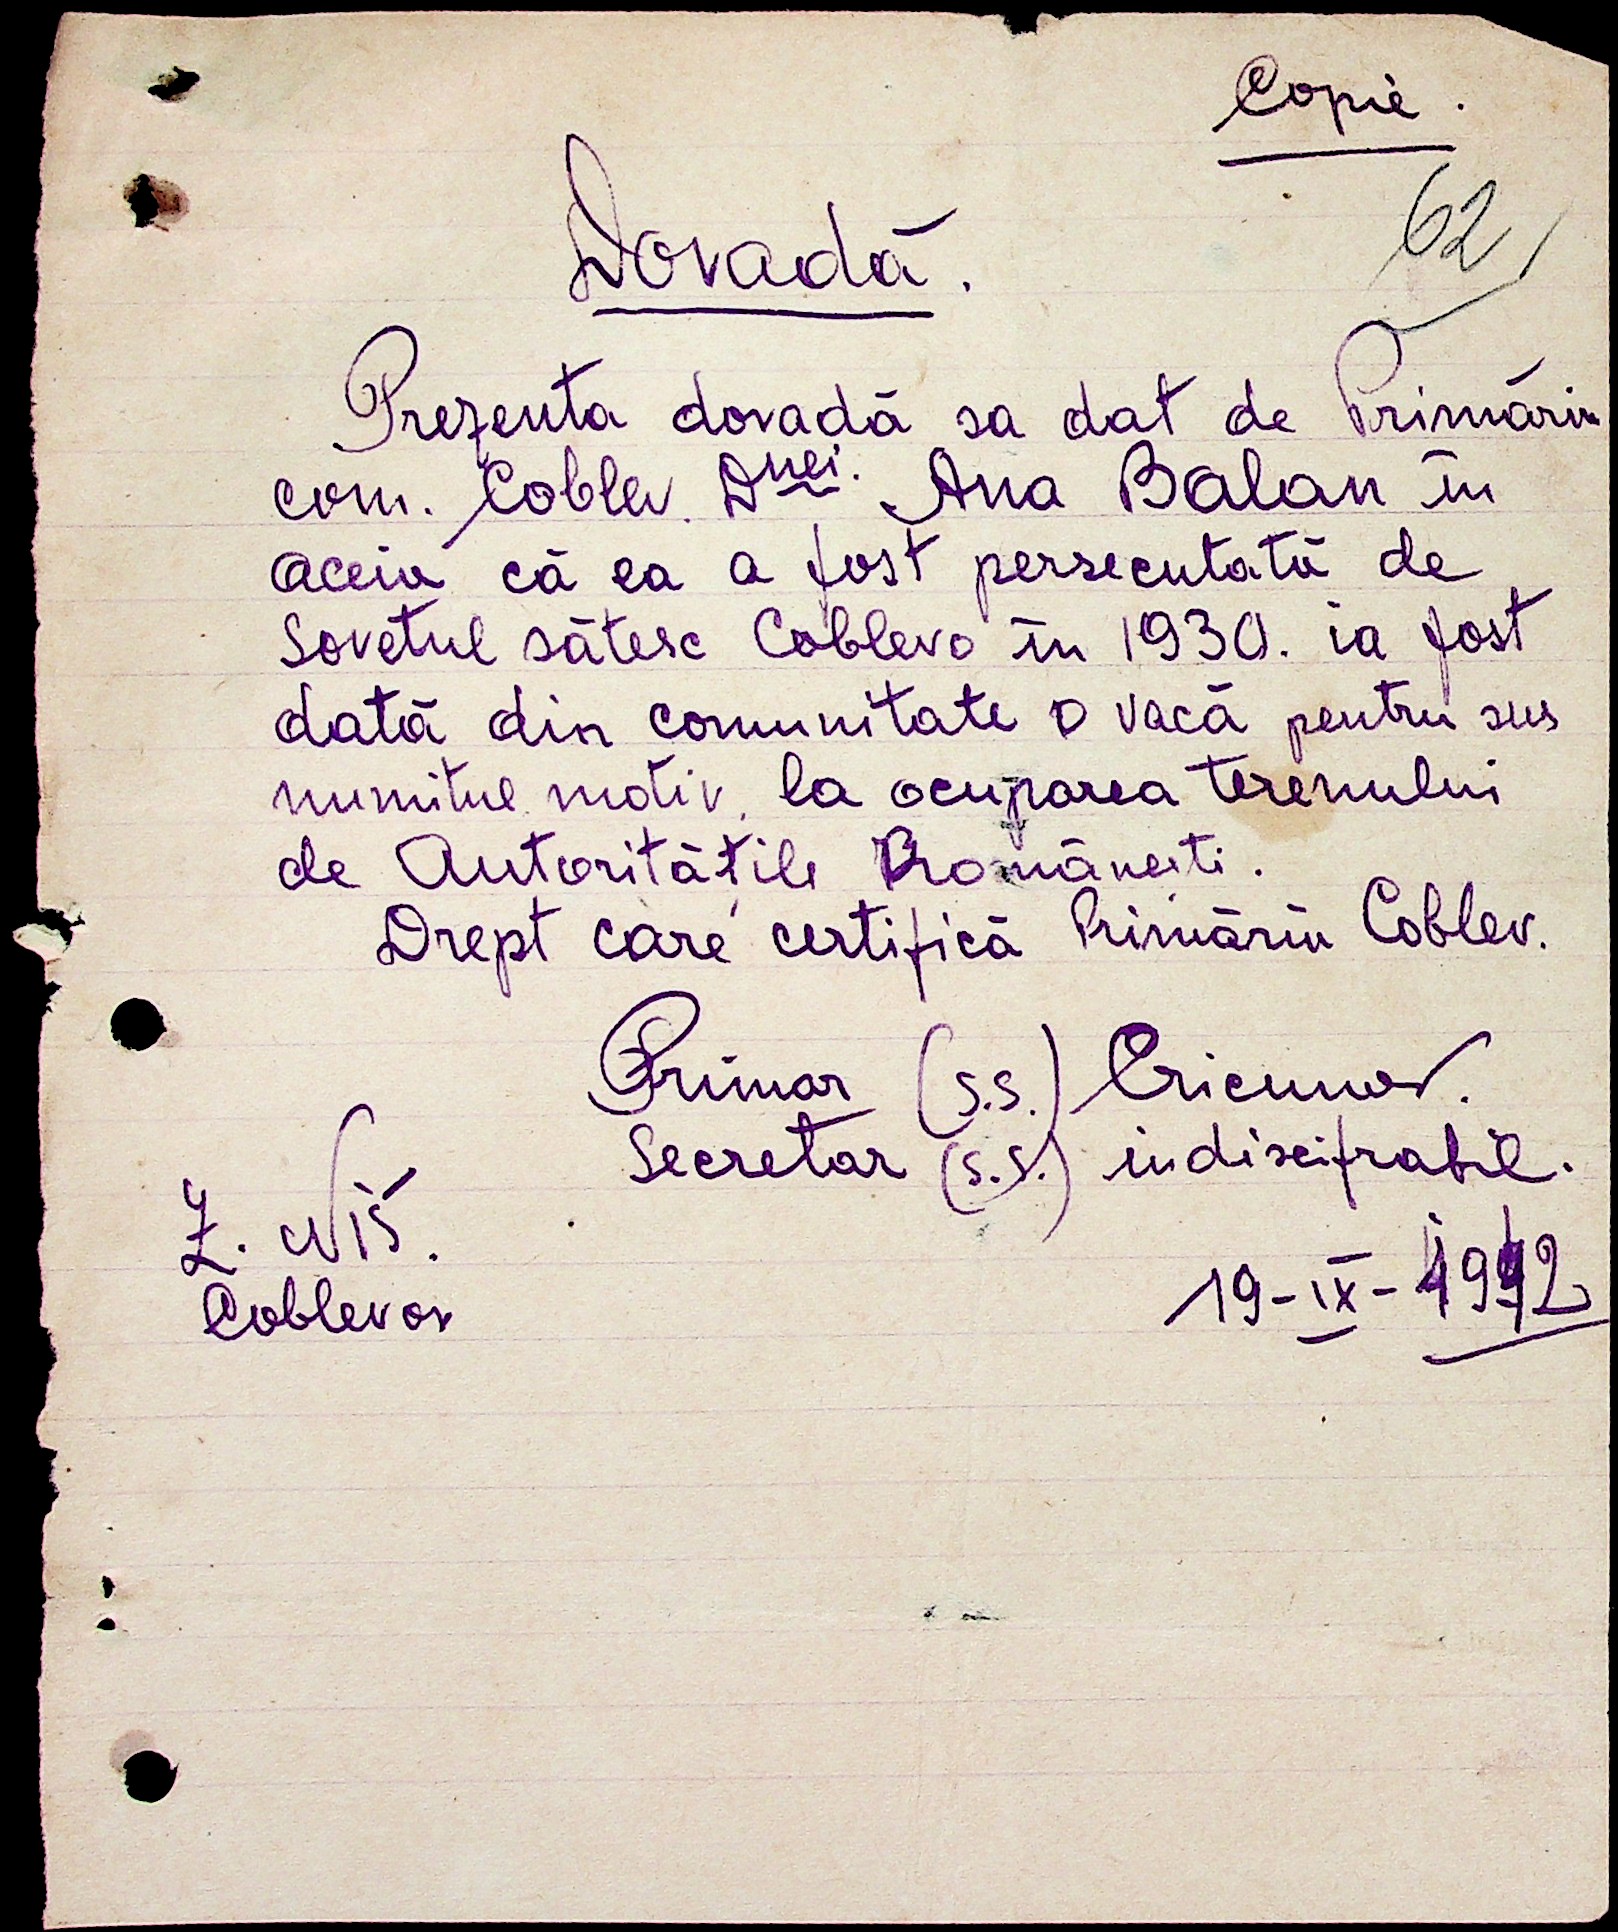 Copie.
62
Dovadă.
Prezenta dovadă sa dat de Primăria
com. Coblev. Dnei. Ana Balan în
aceia că ea a fost persecutată de
Sovetul sătesc Coblevo în 1930. ia fost
dată din comunitate o vacă pentru sus
numitul motiv, la ocuparea terenului
de Autoritățile Românești.
Drept care certifică Primăria Coblev.
Primar (s.s.)
Secretar (s.s.) indiscifrabil.
Z. Niš.
19-IX-1942